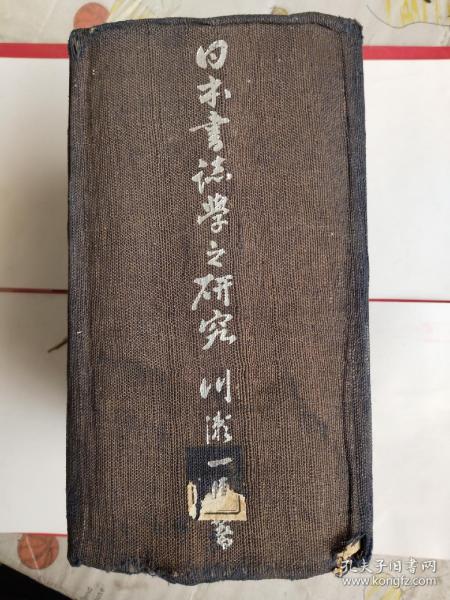 日本書誌学之研究 川瀬一
孔夫子旧书网
www.kongfz.com